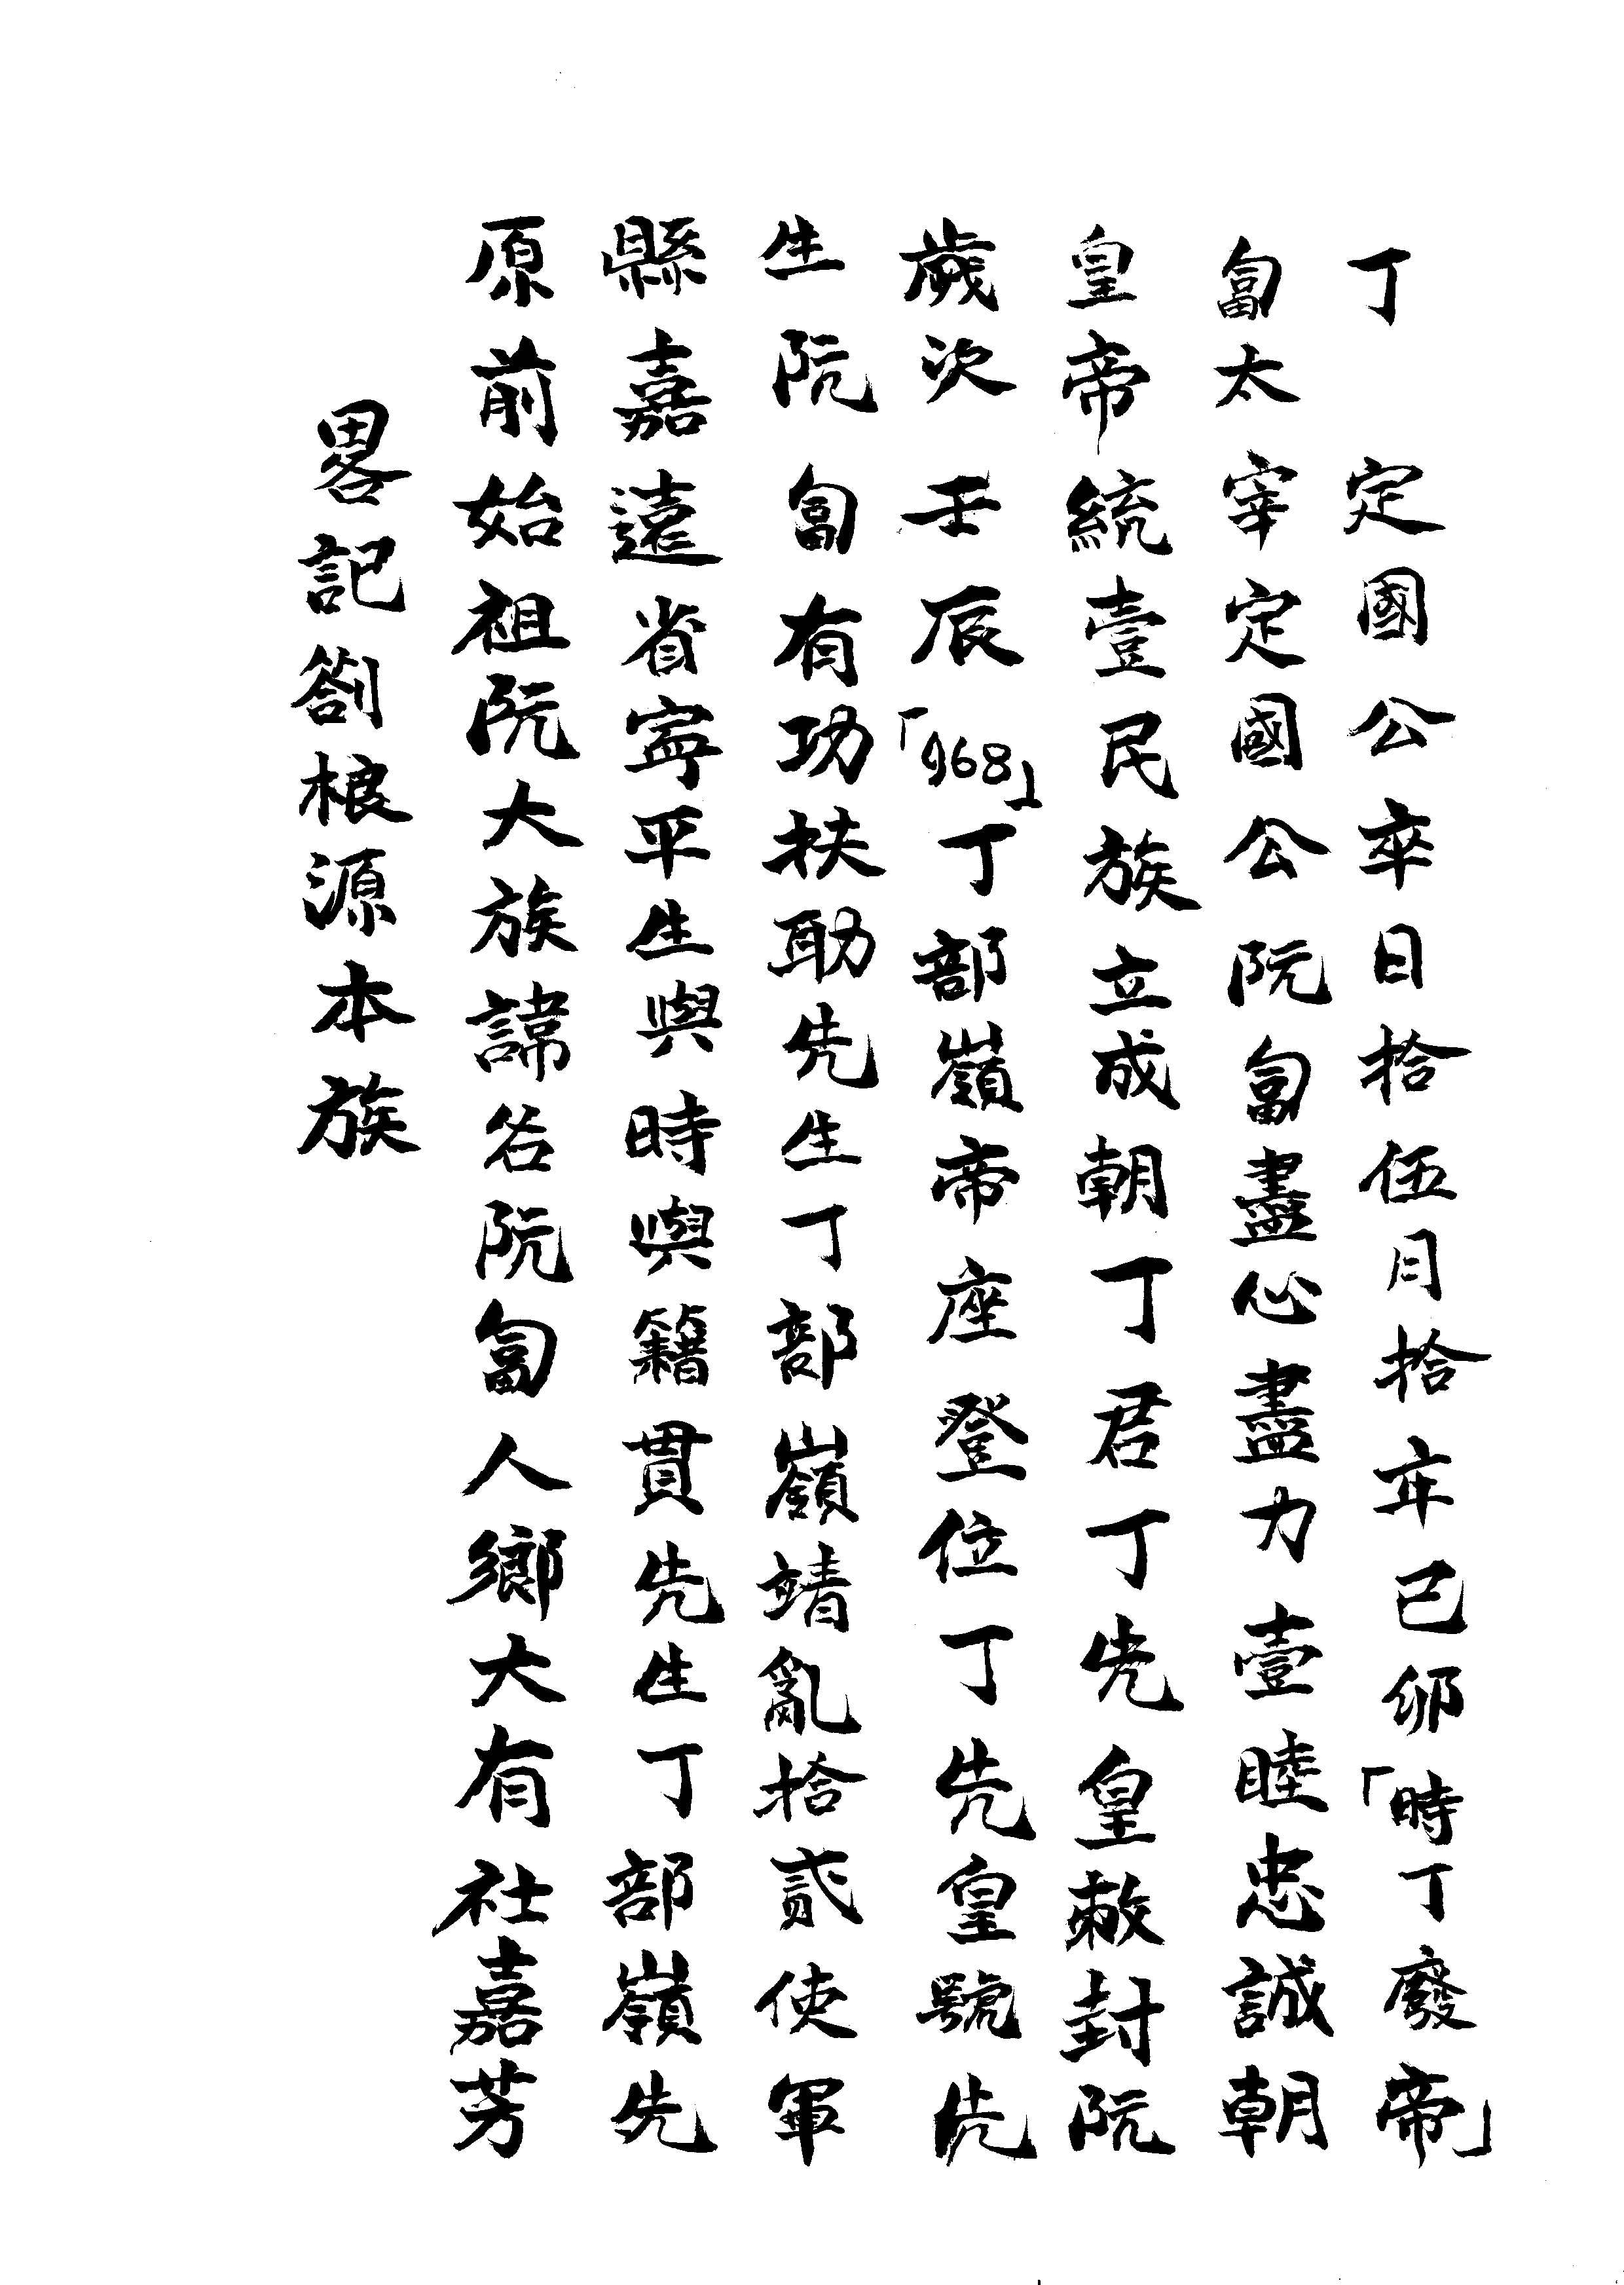 畧記劄根源本族
原前始祖阮大族諱名阮匐人鄉大有社嘉芳
縣嘉遠省寧平生與時與籍貫先生丁部嶺先
生阮匐有功扶助先生丁部嶺靖亂拾貳使軍
歲次壬辰「968」丁部嶺帝座登位丁先皇號先
皇帝統壹民族立成朝丁君丁先皇敕封阮
匐太宰定國公阮匐盡心盡力壹睦忠誠朝
丁 定國公卒日拾伍月拾年己卯「時丁廢帝」